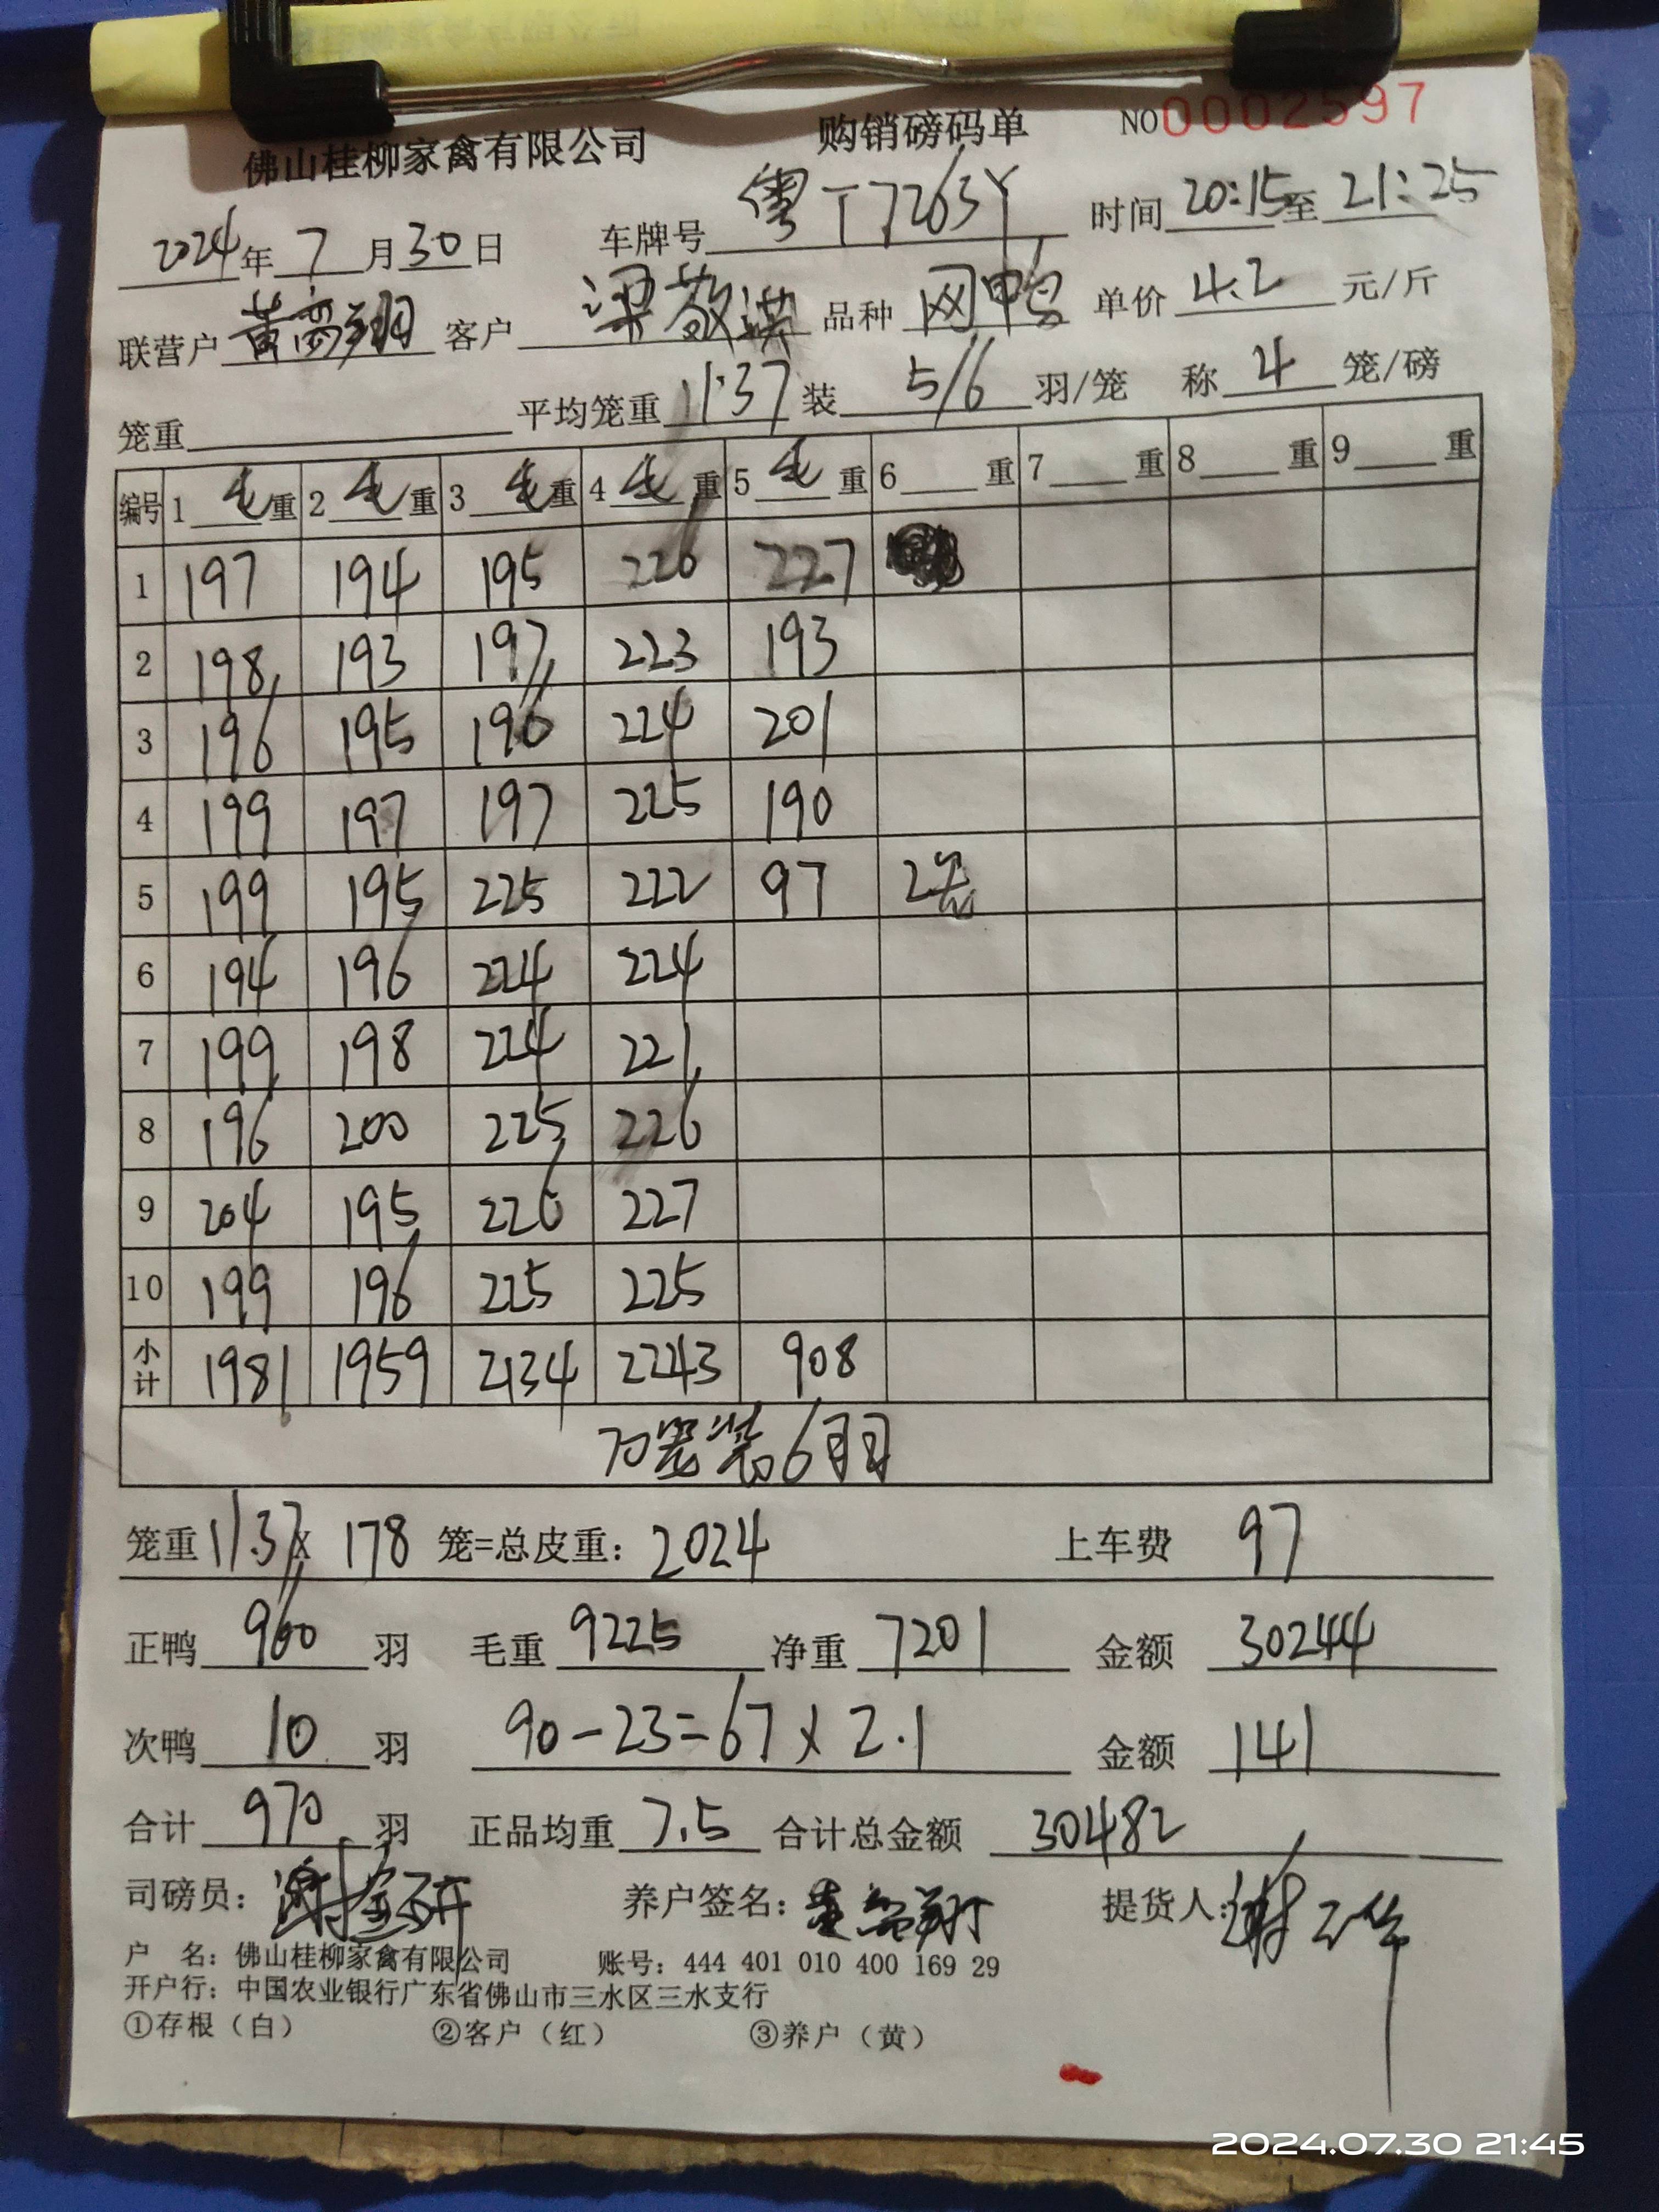 佛山桂柳家禽有限公司 购销磅码单 NO0002597
2024年7月30日 车牌号粤T7263Y 时间20:15至21:25
联营户黄 翔 客户梁敬洪 品种网鸭 单价4.2元/斤
笼重 平均笼重11.37装5/6羽/笼 称4笼/磅
编号 1毛重 2毛重 3毛重 4毛重 5毛重 6 重 7 重 8 重 9 重
1 197 194 195 226 227
2 198 193 197 223 193
3 196 195 196 224 201
4 199 197 197 225 190
5 199 195 225 222 97 2笼
6 194 196 224 224
7 199 198 224 221
8 196 200 225 226
9 204 195 226 227
10 199 196 225 225
小计 1981 1959 2134 2243 908
70笼装6羽
笼重11.37x178笼=总皮重:2024 上车费97
正鸭960羽 毛重9225 净重7201 金额30244
次鸭10羽 90-23=67x2.1 金额141
合计970羽 正品均重7.5 合计总金额30482
司磅员: 养户签名: 翔 提货人:谢 华
户 名:佛山桂柳家禽有限公司 账号:444 401 010 400 169 29
开户行:中国农业银行广东省佛山市三水区三水支行
①存根(白) ②客户(红) ③养户(黄)
2024.07.30 21:45